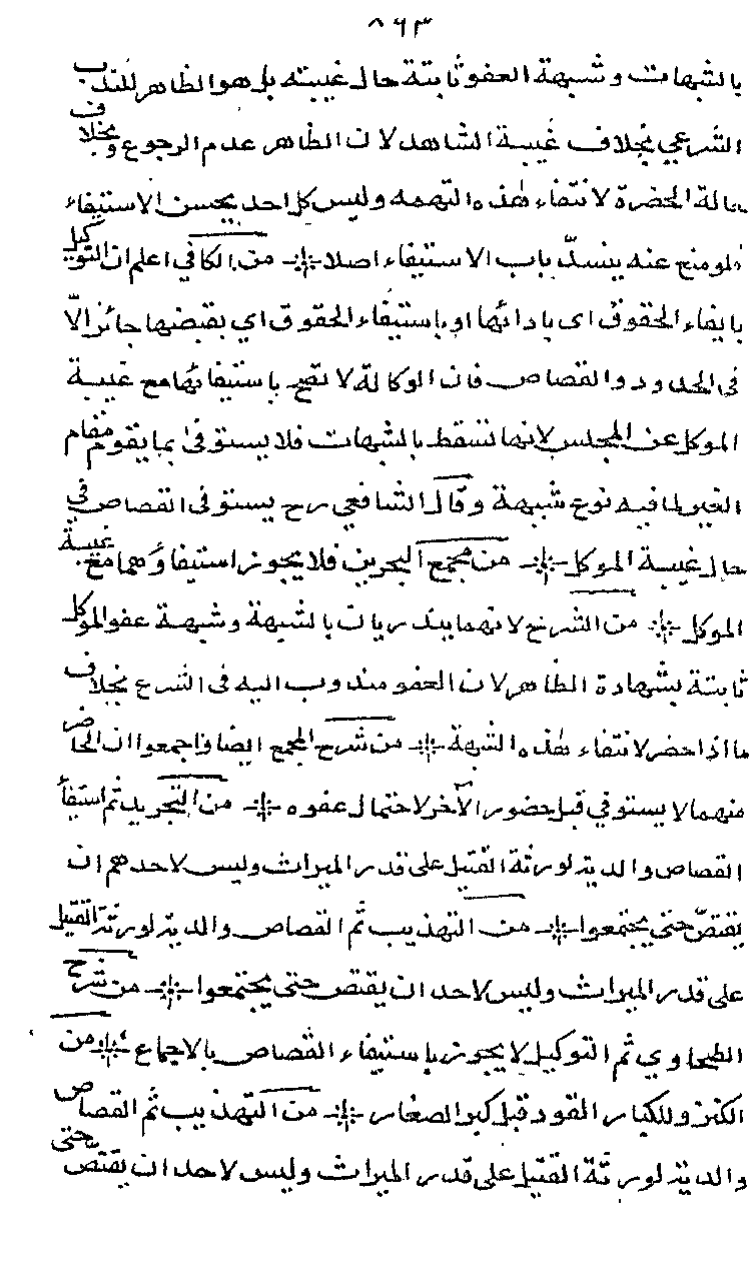 ٨٦٣
بالشبهات وشبهة العفو ثابتة حال غيبته بل هو الظاهر للندب
الشرعي بخلاف غيبة الشاهد لان الظاهر عدم الرجوع وبخلاف
حالة الحضرة لانتفاء هذه التهمه وليس كل احد يحسن الاستيفاء
فلو منع عنه ينسدّ باب الاستيفاء اصلا ❊ من الكافي اعلم ان التوكيل
بايفاء الحقوق اى بادائها او باستيفاء الحقوق اي بقبضها جائز الّا
فى الحدود والقصاص فان الوكالة لا تصح باستيفائها مع غيبة
الموكل عن المجلس لانها تسقط بالشبهات فلا يستوفى بما يقوم مقام
الغير لما فيه نوع شبهة وقال الشافعي رح يستوفى القصاص في
حال غيبة الموكل ❊ من مجمع البحرين فلا يجوز استيفاؤهما مع غيبة
الموكل ❊ من الشرح لانهما يندريان بالشبهة وشبهة عفو الموكل
ثابتة بشهادة الظاهر لان العفو مندوب اليه فى الشرع بخلاف
ما اذا حضر لانتفاء هذه الشبهة ❊ من شرح المجمع ايضا واجمعوا ان الحاضر
منهما لا يستوفي قبل حضور الآخر لاحتمال عفوه ❊ من التجريد ثم استيفاء
القصاص والدية لورثة القتيل على قدر الميراث وليس لاحدهم ان
يقتصّ حتى يجتمعوا ❊ من التهذيب ثم القصاص والدية لورثة القتيل
على قدر الميراث وليس لاحد ان يقتص حتى يجتمعوا ❊ من شرح
الطحاوي ثم التوكيل لا يجوز باستيفاء القصاص بالاجماع ❊ من
الكنز وللكبار القود قبل كبر الصغار ❊ من التهذيب ثم القصاص
والدية لورثة القتيل على قدر الميراث وليس لاحد ان يقتص حتى